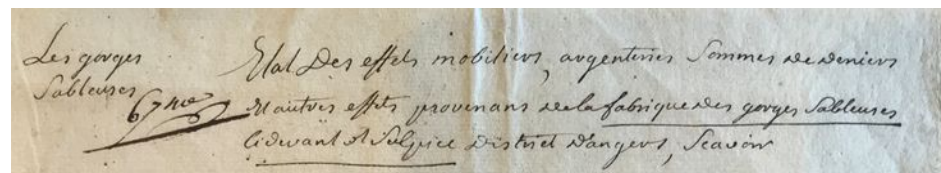 Les gorges
Sableuses
67eme
Etat Des effets mobiliers, argenteries Sommes de deniers
et autres effets provenans de la fabrique des gorges Sableuses
cidevant St Sulpice District d'angers, Scavoir